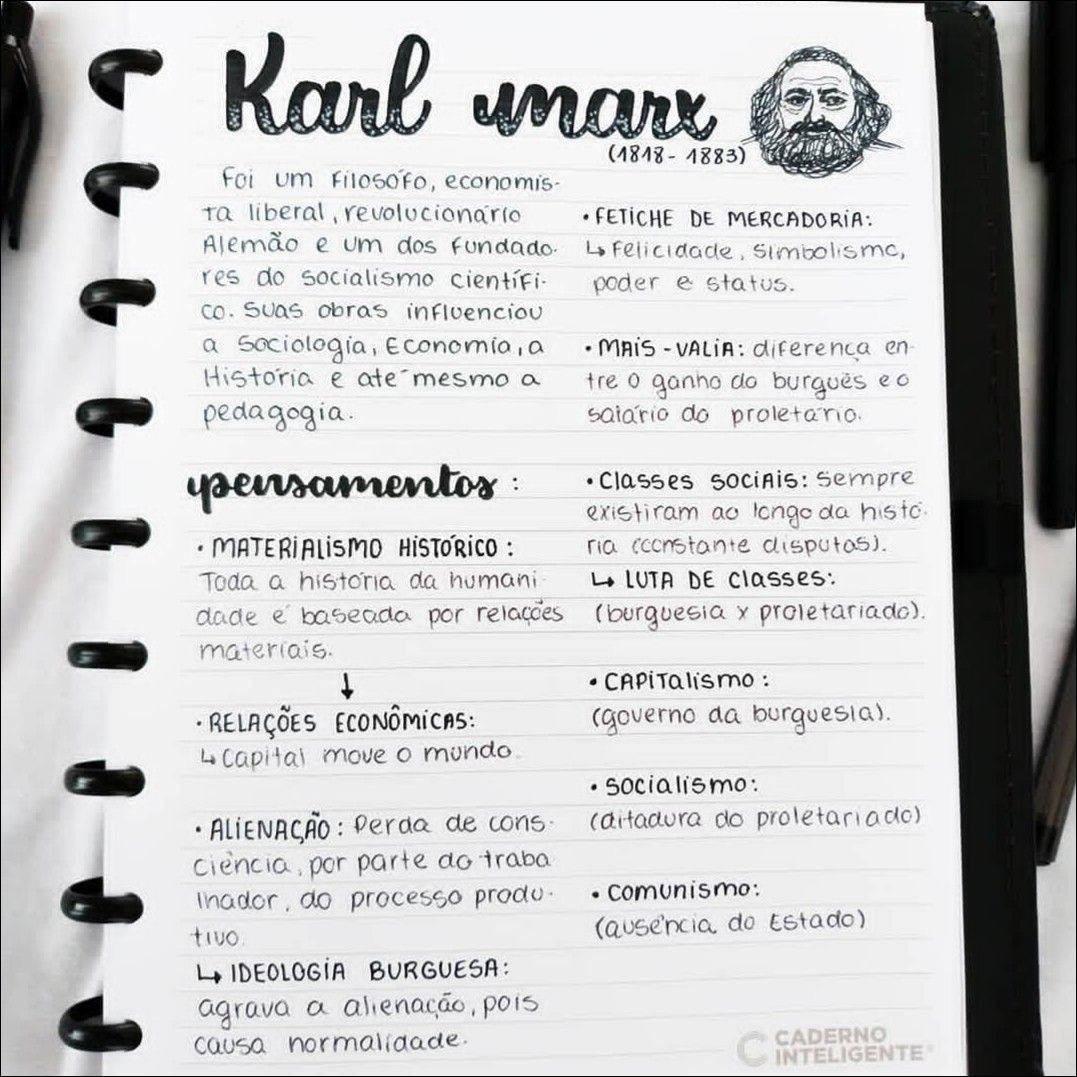 Karl Marx
(1818 - 1883)
Foi um Filosófo, economis-
ta liberal, revolucionário
Alemão e um dos Fundado-
res do socialismo científi-
co. Suas obras influenciou
a Sociologia, Economia, a
História e até mesmo a
pedagogia.
pensamentos:
• MATERIALISMO HISTÓRICO:
Toda a história da humani-
dade é baseada por relações
materiais.
↓
• RELAÇÕES ECONÔMICAS:
↳ Capital move o mundo.
• ALIENAÇÃO: Perda de cons-
ciência, por parte do traba
lhador, do processo produ-
tivo.
↳ IDEOLOGIA BURGUESA:
agrava a alienação, pois
causa normalidade.
• FETICHE DE MERCADORIA:
↳ Felicidade, Simbolismo,
poder e status.
• MAIS-VALIA: diferença en-
tre o ganho do burguês e o
salário do proletário.
• Classes sociais: Sempre
existiram ao longo da histó-
ria (constante disputas).
↳ LUTA DE Classes:
(burguesia x proletariado).
• CAPITALISMO:
(governo da burguesia).
• Socialismo:
(ditadura do proletariado)
• Comunismo:
(ausência do Estado)
CADERNO
INTELIGENTE®